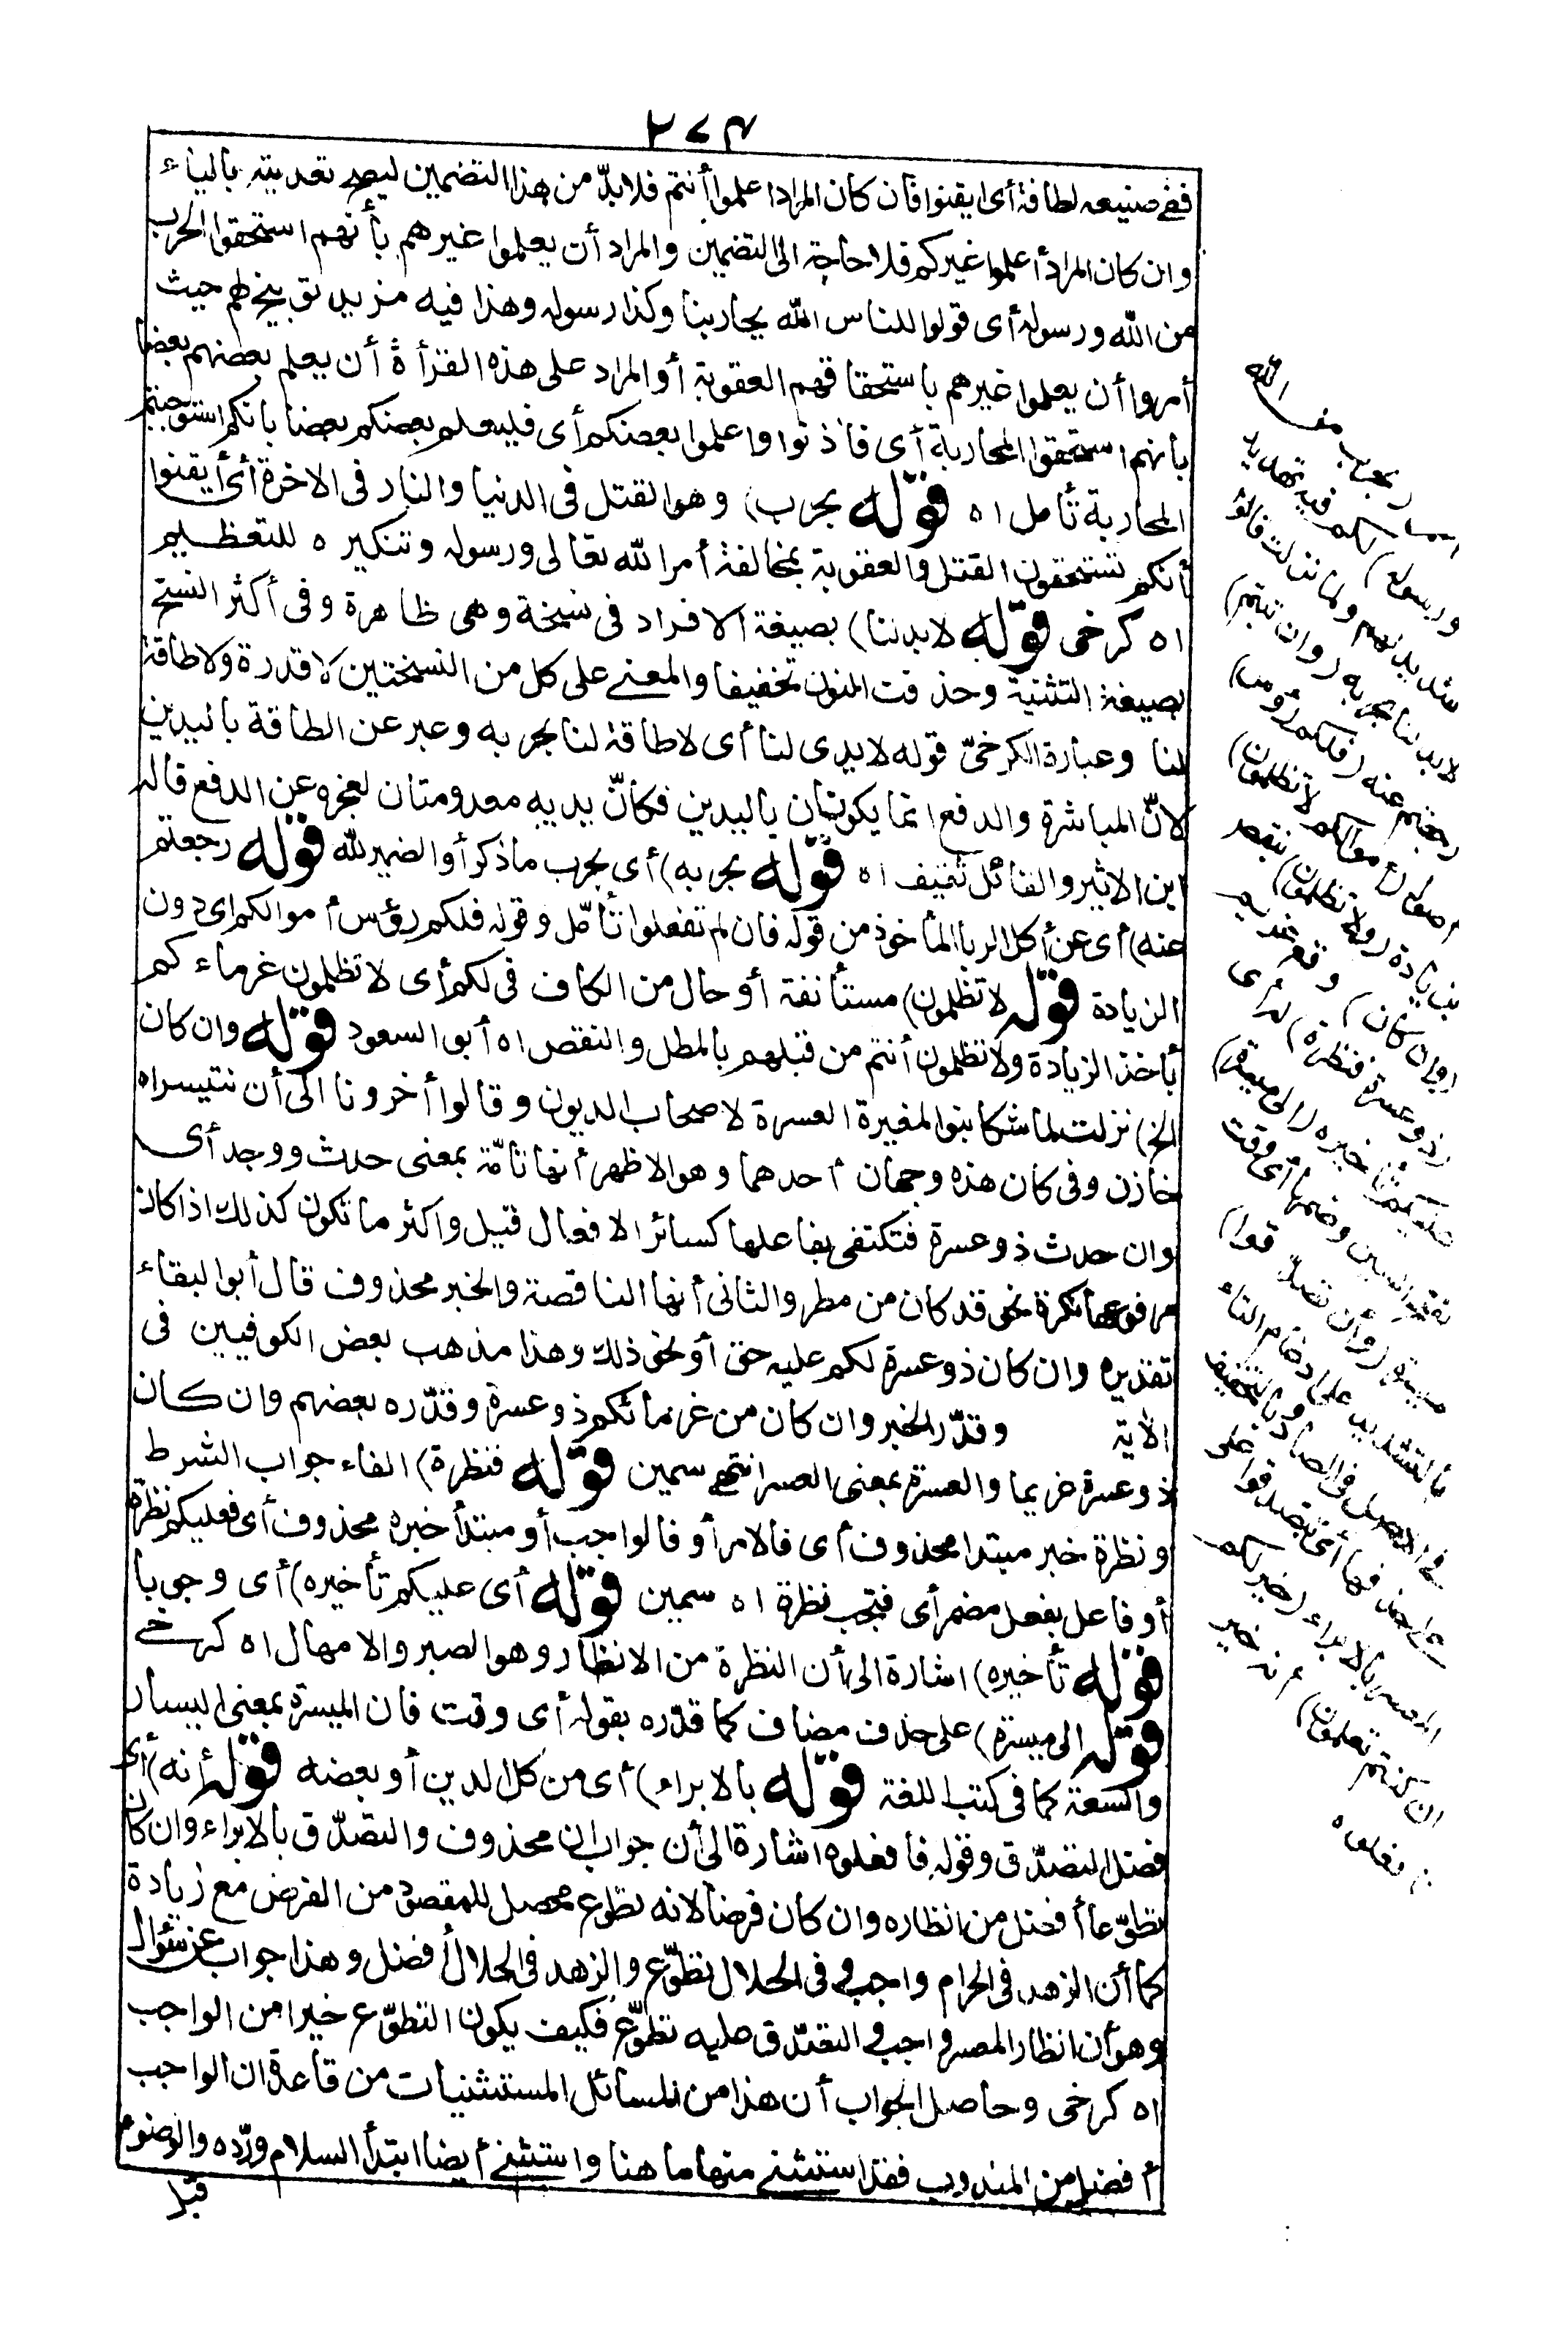 ٢٧٣
ففي صنيعه لطافة أى ايقنوا فان كان المراد اعلموا أنتم فلا بدّ من هذا التضمين ليصح تعديته بالباء
وان كان المراد أعلموا غيركم فلا حاجة الى التضمين والمراد أن يعلموا غيرهم بأنهم استحقوا الحرب
من الله ورسوله أى قولوا للناس الله يحاربنا وكذا رسوله وهذا فيه مزيد توبيخ لهم حيث
أمروا أن يعلموا غيرهم باستحقاقهم العقوبة أو المراد على هذه القرأة أن يعلم بعضهم بعضا
بأنهم استحقوا المحاربة أى فأذنوا واعلموا بعضكم أى فليعلم بعضكم بعضا بانكم استوجبتم
المحاربة تأمل اه قوله بحرب) وهو القتل فى الدنيا والنار فى الاخرة أى أيقنوا
أنكم تستحقون القتل والعقوبة بمخالفة أمر الله تعالى ورسوله وتنكيره للتعظيم
اه كرخى قوله لا بد لنا) بصيغة الافراد فى نسخة وهى ظاهرة وفى أكثر النسخ
بصيغة التثنية وحذفت النون تخفيفا والمعنى على كل من النسختين لا قدرة ولا طاقة
لنا وعبارة الكرخىّ قوله لا يدى لنا أى لا طاقة لنا بحربه وعبر عن الطاقة باليدين
لانّ المباشرة والدفع انما يكونان باليدين فكأنّ يديه معدومتان لعجزه عن الدفع قاله
ابن الاثير والقائل ثقيف اه قوله بحربه) أى بحرب ما ذكر أو الضمير لله قوله رجعتم
عنه) أى عن أكل الربا المأخوذ من قوله فان لم تفعلوا تأمّل وقوله فلكم رؤس أموالكم اى دون
الزيادة قوله لا تظلمون) مستأنفة أو حال من الكاف فى لكم أى لا تظلمون غرماءكم
بأخذ الزيادة ولا تظلمون أنتم من قبلهم بالمطل والنقص اه أبو السعود قوله وان كان
الخ) نزلت لما شكا بنوا المغيرة العسرة لاصحاب الديون وقالوا أخرونا الى أن نتيسر اه
خازن وفى كان هذه وجهان أحدهما وهو الاظهر أنها تامّة بمعنى حدث ووجد أى
وان حدث ذو عسرة فتكتفى بفاعلها كسائر الافعال قيل واكثر ما تكون كذلك اذا كان
مرفوعها نكرة نحو قد كان من مطر والثانى أنها الناقصة والخبر محذوف قال أبو البقاء
تقديره وان كان ذو عسرة لكم عليه حق أو نحو ذلك وهذا مذهب بعض الكوفيين فى
الأية وقدّر الخبر وان كان من غرمائكم ذو عسرة وقدّره بعضهم وان كان
ذو عسرة غريما والعسرة بمعنى العسر انتهى سمين قوله فنظرة) الفاء جواب الشرط
ونظرة خبر مبتدا محذوف أى فالامر أو فالواجب أو مبتدأ خبره محذوف أى فعليكم نظرة
أو فاعل بفعل مضمر أى فتجب نظرة اه سمين قوله أى عليكم تأخيره) أى وجوبا
قوله تأخيره) اشارة الى أن النظرة من الانظار وهو الصبر والامهال اه كرخى
قوله الى ميسرة) على حذف مضاف كما قدّره بقوله أى وقت فان الميسرة بمعنى اليسار
والسعة كما فى كتب اللغة قوله بالابراء) أى من كل الدين أو بعضه قوله أنه) أى
فضل التصدّق وقوله فأفعلوه اشارة الى أن جواب ان محذوف والتصدّق بالابراء وان كان
تطوّعا أفضل من انظاره وان كان فرضا لانه تطوع محصل للمقصود من الفرض مع زيادة
كما أن الزهد فى الحرام واجب وفى الحلال تطوّع والزهد فى الحلال أفضل وهذا جواب عن سؤال
وهو أن انظار المعسر واجب والتصدّق عليه تطوّع فكيف يكون التطوّع خيرا من الواجب
اه كرخى وحاصل الجواب أن هذا من المسائل المستثنيات من قاعدة ان الواجب
أفضل من المندوب فقد استثنى منها ما هنا واستثنى أيضا ابتدأ السلام وردّه والوضوء
قبل
من الله
ورسوله) لكم فيه تهديد
شديد لهم ولما نزلت قالوا
لا بد لنا بحربه (وان تبتم)
رجعتم عنه (فلكم رؤس)
أموالكم لا تظلمون)
بزيادة (ولا تظلمون) بنقص
(وان كان) وقع غريم
(ذو عسرة فنظرة) له أى
عليكم تأخيره (الى ميسرة)
بفتح السين وضمها أى وقت
ميسرة (وأن تصدّقوا)
بالتشديد على ادغام التاء
فى الاصل فى الصاد وبالتخفيف
على حذفها أى تتصدقوا على
المعسر بالابراء (خير لكم
ان كنتم تعلمون) أنه خير
فافعلوه